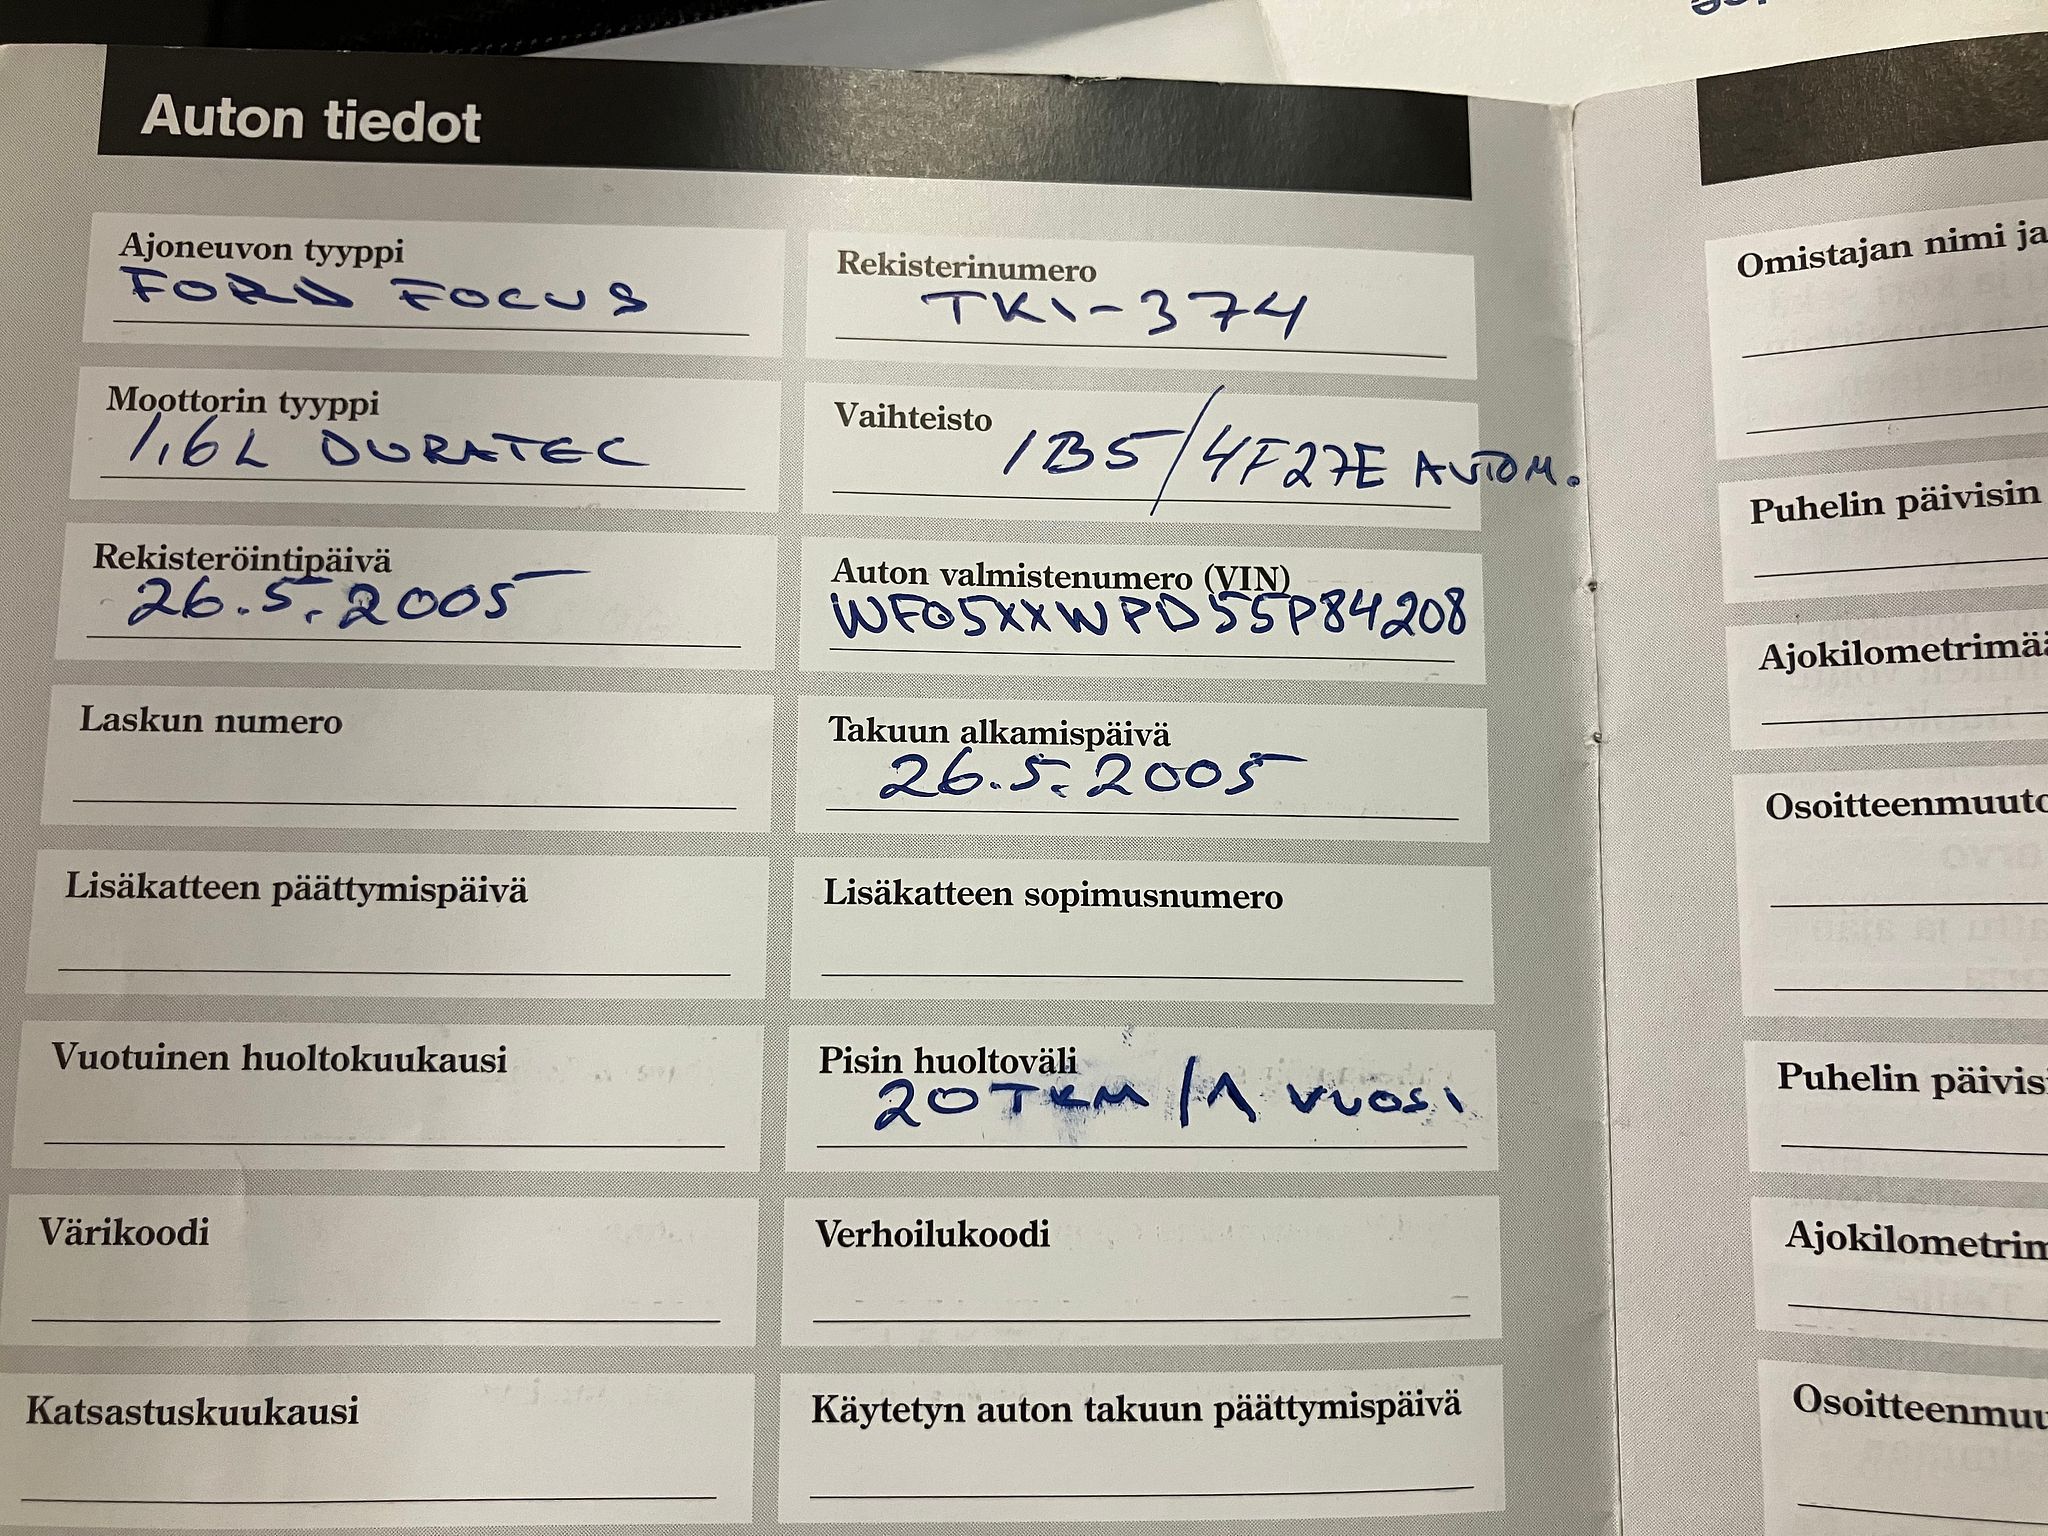 Auton tiedot
Ajoneuvon tyyppi
FORD FOCUS
Rekisterinumero
TKI-374
Moottorin tyyppi
1,6L DURATEC
Vaihteisto
IB5/4F27E AUTOM.
Rekisteröintipäivä
26.5.2005
Auton valmistenumero (VIN)
WF05XXWPD55P84208
Laskun numero
Takuun alkamispäivä
26.5.2005
Lisäkatteen päättymispäivä
Lisäkatteen sopimusnumero
Vuotuinen huoltokuukausi
Pisin huoltoväli
20TKM/1 VUOSI
Värikoodi
Verhoilukoodi
Katsastuskuukausi
Käytetyn auton takuun päättymispäivä
Omistajan nimi ja
Puhelin päivisin
Ajokilometrimää
Osoitteenmuuto
Puhelin päivisi
Ajokilometrim
Osoitteenmuu